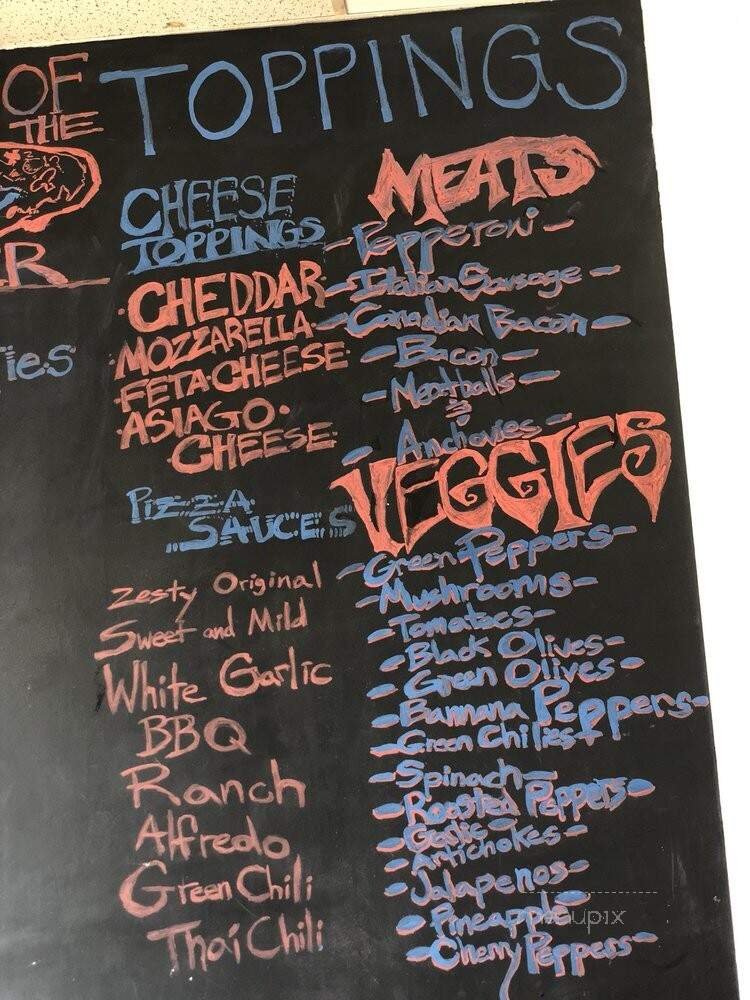 OF
THE
R
ies
TOPPINGS
CHEESE
TOPPINGS
CHEDDAR
MOZZARELLA
FETA CHEESE
ASIAGO
CHEESE
PIZZA
SAUCES
Zesty Original
Sweet and Mild
White Garlic
BBQ
Ranch
Alfredo
Green Chili
Thai Chili
MEATS
- Pepperoni -
- Italian Sausage -
- Canadian Bacon -
- Bacon -
- Meatballs -
&
- Anchovies -
VEGGIES
- Green Peppers -
- Mushrooms -
- Tomatoes -
- Black Olives -
- Green Olives -
- Bannana Peppers -
- Green Chilies -
- Spinach -
- Roasted Peppers -
- Garlic -
- Artichokes -
- Jalapenos -
- Pineapple -
- Cherry Peppers -
menupix